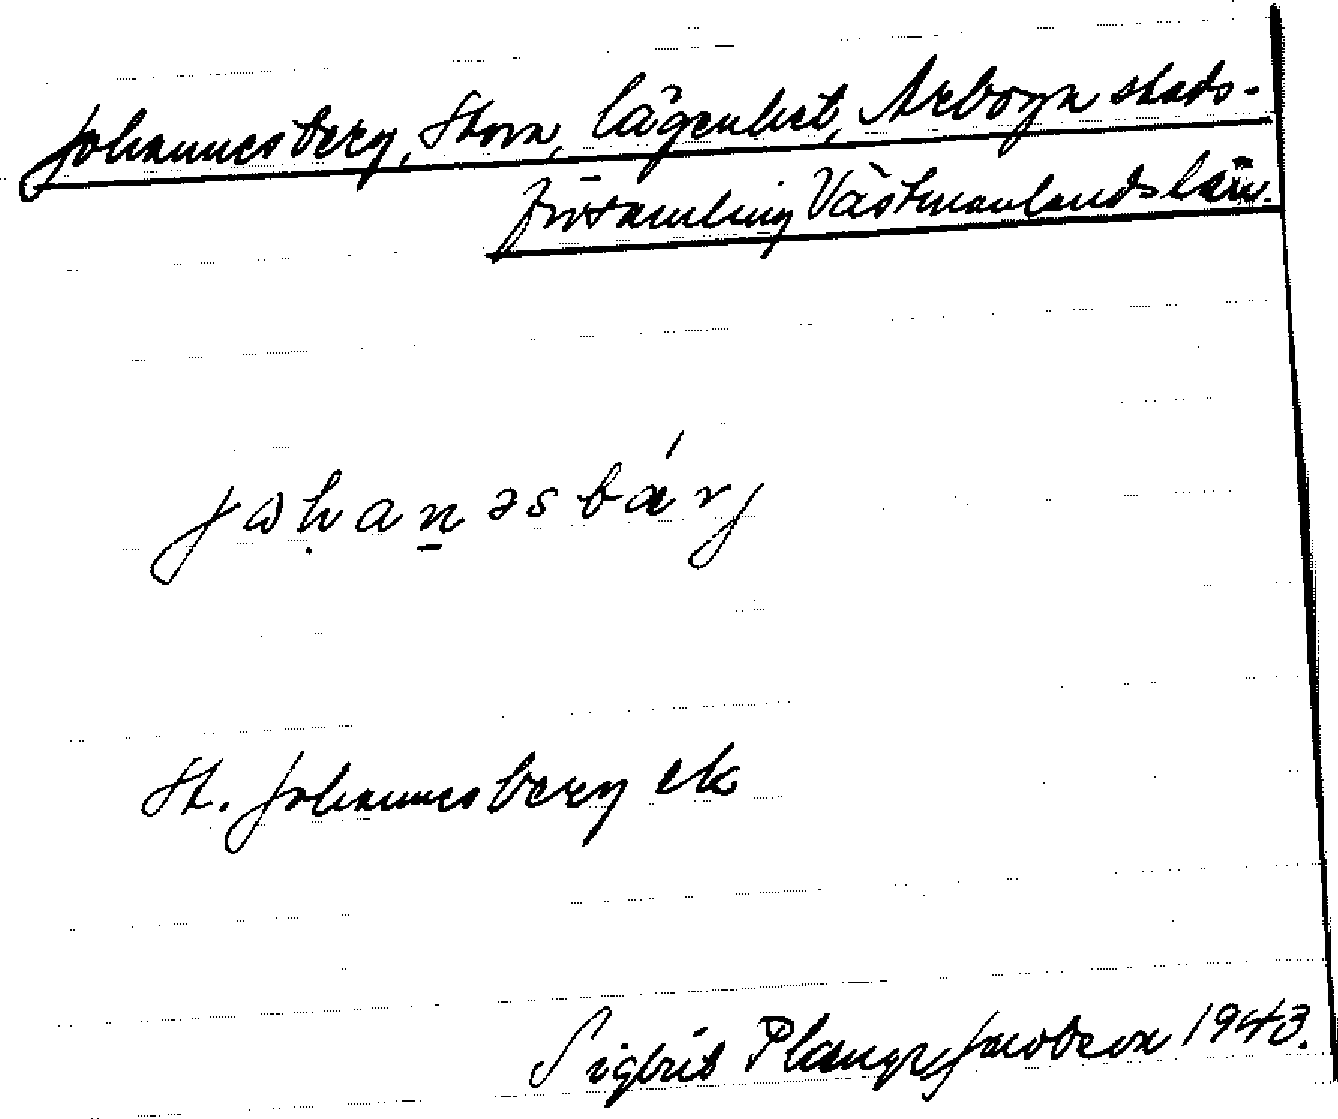 Johannesberg, Stora, lägenhet, Arboga stads-
församling Västmanlands län.
jωḥan̲əsbárj
St. Johannesberg ek
Sigbrit Plænge Jacobson 1943.